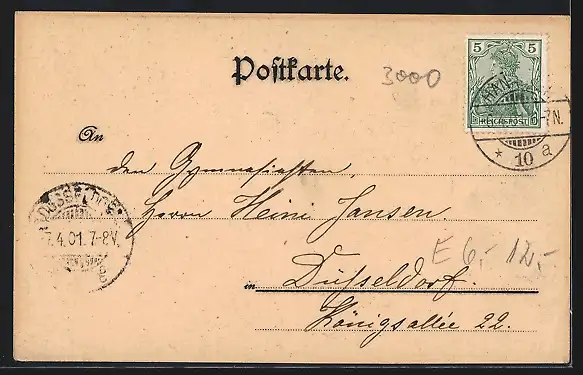 Postkarte.
3000
5 5
REICHSPOST
7N.
* 10 a
An
den Gymnasiasten,
Herrn Heini Jansen.
DÜSSELDORF
7.4.01.7-8V.
E 6,- 12,-
in Düsseldorf.
Königsallée 22.